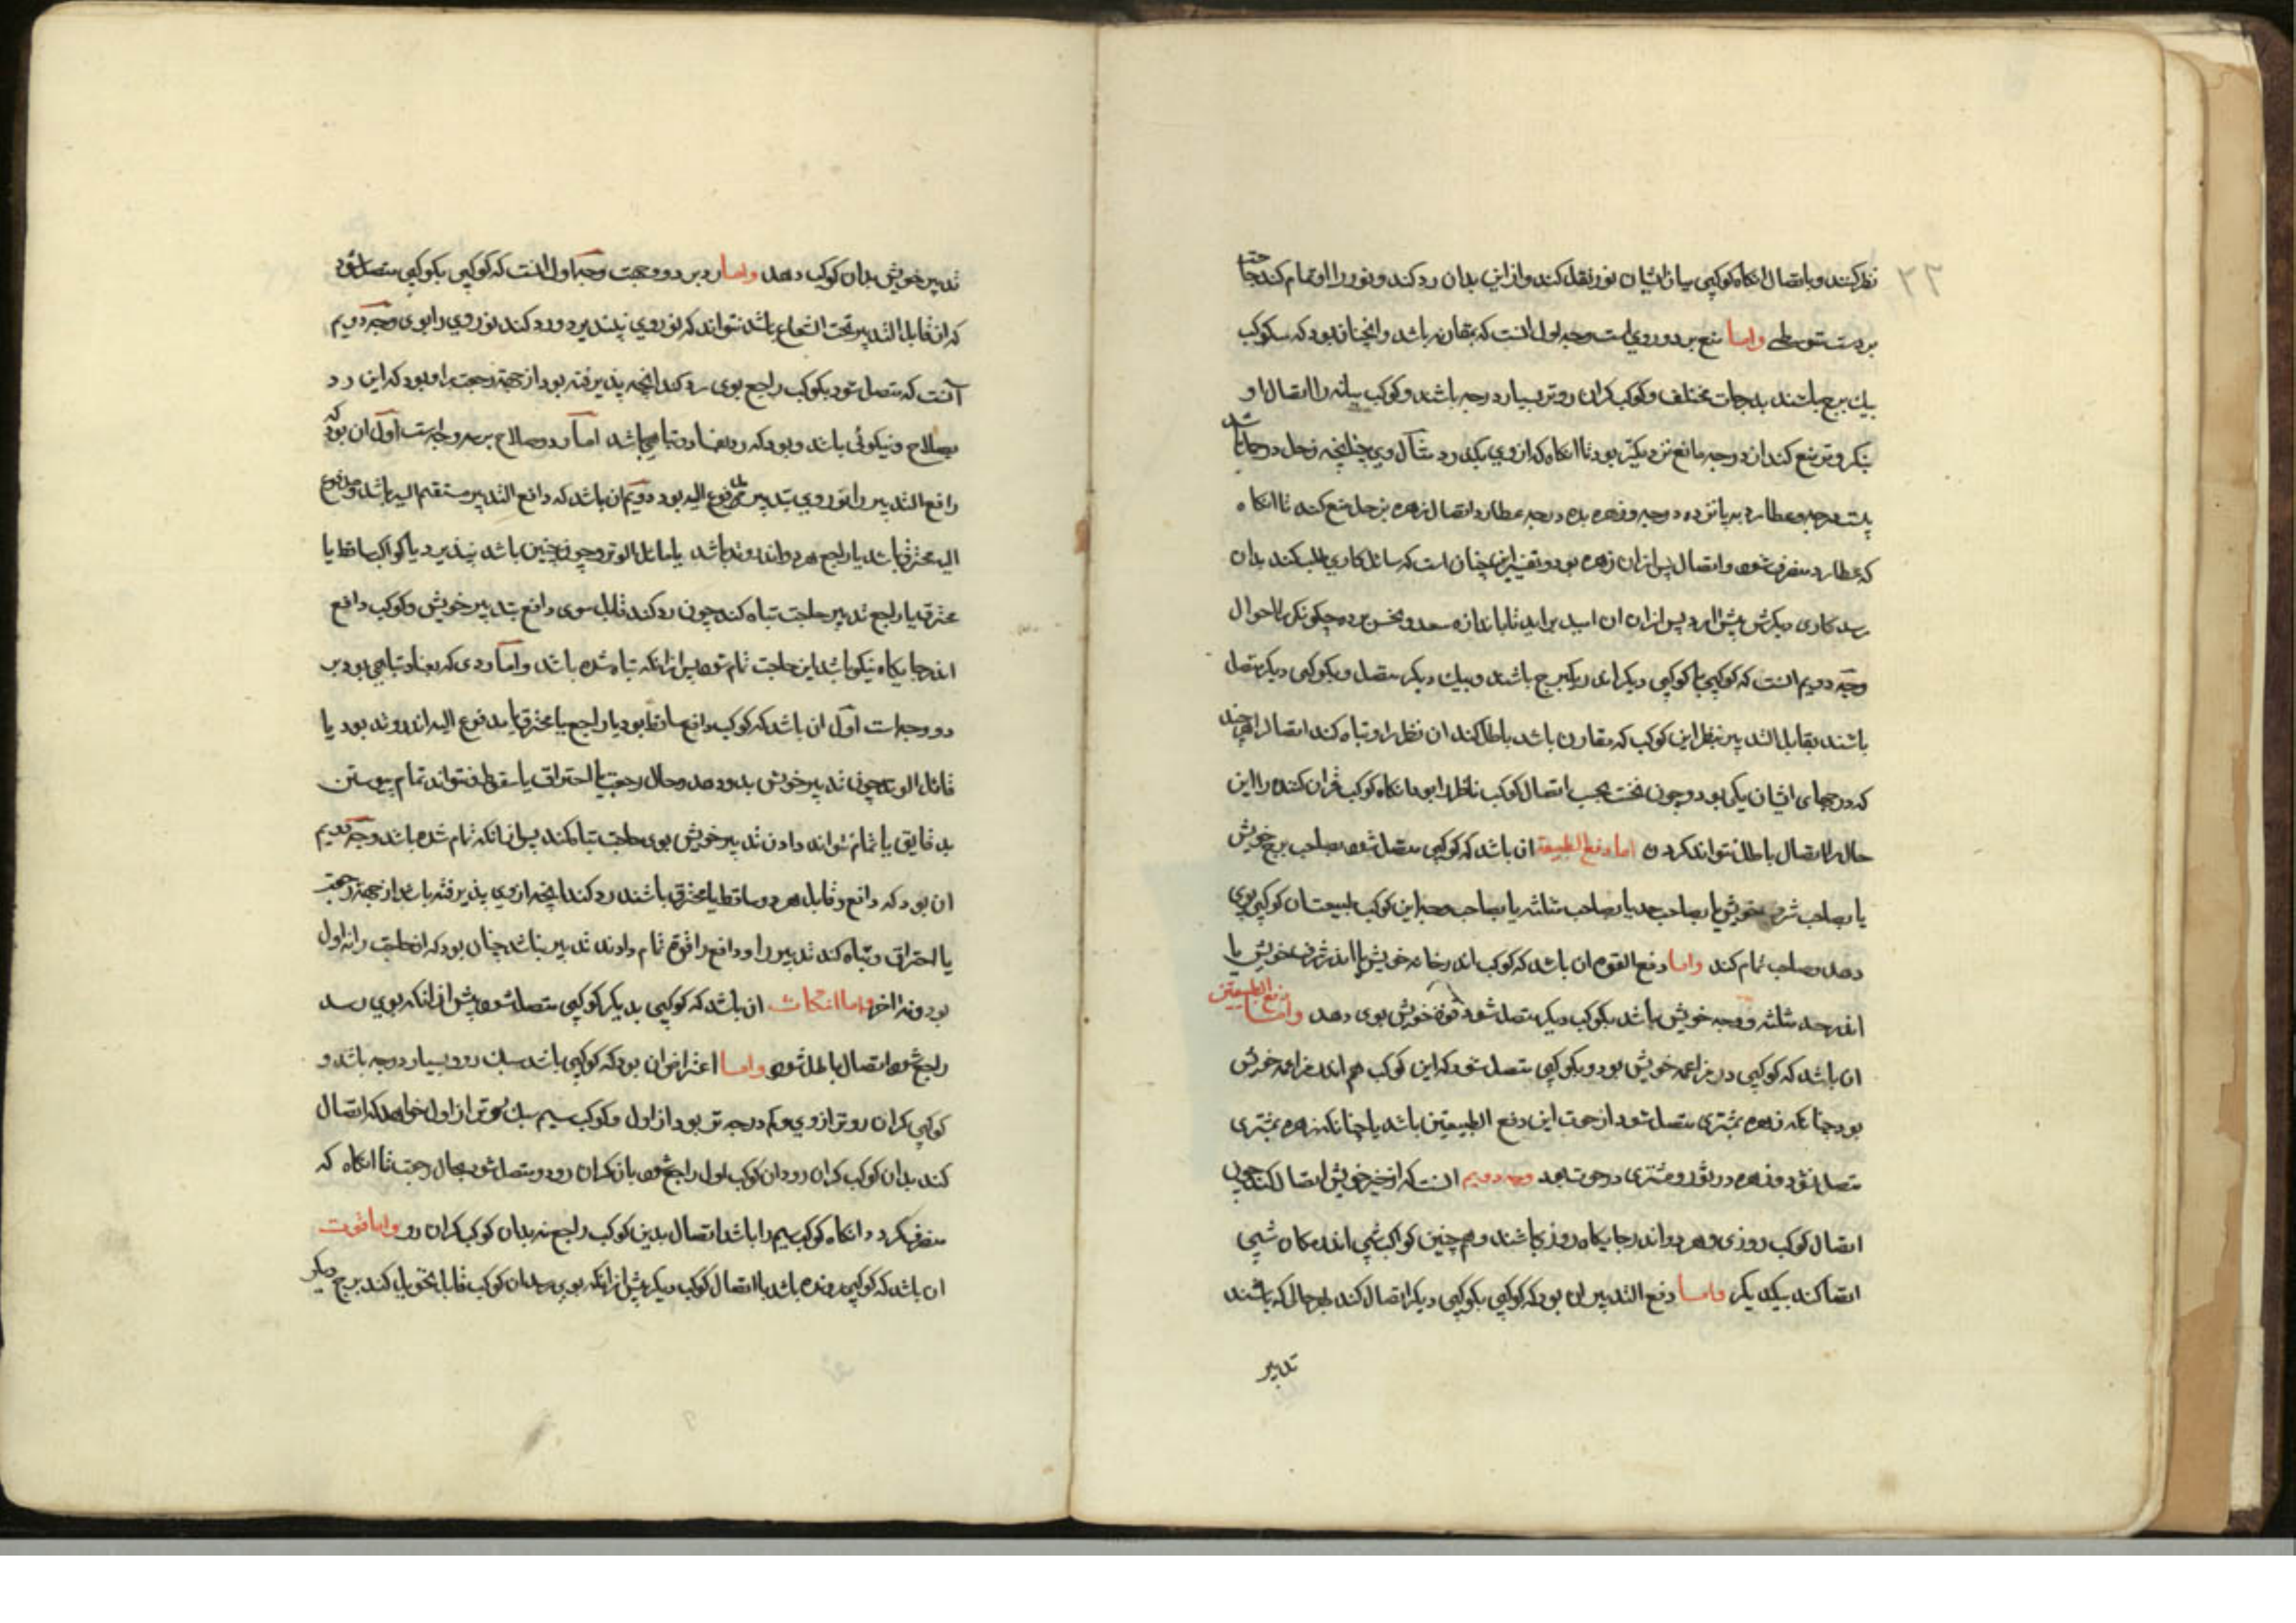 نظر کنند و باتصال انکاه کوکبی میان ایشان نور نقل کند و از این بدان رد کند و نور را او تمام کند حاجت
بردست متوسطی واما منع بر دو روی است وجه اول انست که بمقارنه باشد وانچنان بود که سه کوکب
بیک برج باشند بدرجات مختلف و کوکب کران روتر بسیار درجه باشند و کوکب میانه را اتصال او
سبکروتر منع کند ان درجه مانع نزدیکتر بود تا انکاه که از وی بگذرد مثال وی چنانچه زحل در حمل باشد
بیست درجه و عطارد بپانزده درجه و زهره بده درجه عطارد اتصال زهره بزحل منع کند تا انکاه
که عطارد منصرف شود و اتصال پس ازان زهره بود و تفسیر این چنان است که سائل کاری طلب کند بدان
رسد کاری دیکرش پیش آید و پس ازان ان امید براید تا باندازه سعد و نحس برده چکونکی احوال
وجه دویم انست که کوکبی با کوکبی دیکر اندر یکبرج باشند و بیک دیکر متصل و بکوکبی دیکر متصل
باشند بقابل التدبیر بنظر این کوکب که مقارن باشد باطل کند ان نظر را و تباه کند اتصال را هرچند
که درجهای ایشان یکی بود و چون نخست بجب اتصال کوکب ناظر را بود انکاه کوکب قران کننده را این
حال را اتصال باطل نتواند کردن اما دفع الطبیعة ان باشد که کوکبی متصل شود بصاحب برج خویش
یا بصاحب شرف خویش یا بصاحب حد یا بصاحب مثلثه یا بصاحب وجه این کوکب طبیعت ان کوکب بوی
دهد و صاحب تمام کند واما دفع القوه ان باشد که کوکب اندر خانه خویش یا اندر شرف خویش یا
اندر حد مثلثه و وجه خویش باشد بکوکب دیکر متصل شود قوة خویش بوی دهد واما دفع الطبیعتین
ان باشد که کوکبی در مزاعمه خویش بود و بکوکبی متصل شود که این کوکب هم اندر مزاعمه خویش
بود چنانکه زهره بمشتری متصل شود از حوت این دفع الطبیعتین باشد یا چنانکه زهره بمشتری
متصل شود و زهره در ثور و مشتری در حوت باشد وجه دویم انست که از خیر خویش اتصال کند چون
اتصال کوکب روزی و هر دو اندر جایکاه روزی باشند و هم چنین کواکب شبی اندر مکان شبی
اتصال کند بیکدیگر واما دفع التدبیر ان بود که کوکبی بکوکبی دیکر اتصال کند بهر حالی که باشند
تدبیر
تدبیر خویش بدان کوکب دهد واما رد بر دو وجهست وجه اول انست که کوکبی بکوکبی متصل شود
که ان قابل التدبیر تحت الشعاع باشد نتواند که نور وی بپذیرد و رد کند نور وی را بوی وجه دویم
آنست که متصل شود بکوکب راجع بوی رد کند انچه پذیرفته بود از جهة رجعت او بود که این رد
بصلاح و نیکوئی باشد و بود که رد بفساد و تباهی باشد اما رد و صلاح بر سه وجه است اول ان بود که
دافع التدبیر را نور وی بتدبیر مدفوع الیه بود دویم ان باشد که دافع التدبیر مستقیم السیر باشد و مدفوع
الیه محترق باشد یا راجع هر دو اندر وتد باشند یا مائل الوتد و چون چنین باشد بپذیرد یا کواکب ساقط یا
محترق یا راجع تدبیر حاجت تباه کند چون رد کند قابل سوی دافع بتدبیر خویش و کوکب دافع
اندر جایکاه نیکو باشد این حاجت تمام شود پس ازانکه تباه شده باشد واما ردی که بفساد و تباهی بود بر
دو وجه است اول ان باشد که کوکب دافع ساقط بود یا راجع یا محترق یا مدفوع الیه اندر وتد بود یا
مائل الوتد چون تدبیر خویش بدو دهد و حال رجعت یا احتراق یا سقوط نتواند تمام پیوستن
بدقایق یا تمام نتواند دادن تدبیر خویش بوی حاجت تباه کند پس ازانکه تمام شده باشد وجه دویم
ان بود که دافع و قابل هر دو ساقط یا محترق باشند رد کند انچه از وی پذیرفته باشد از جهة رجعت
یا احتراق و تباه کند تدبیر را و دافع را قوة تمام دادند تدبیر نباشد چنان بود که ان حاجت را نه اول
بود و نه اخر واما انتکاث ان باشد که کوکبی بدیکر کوکبی متصل شود پیش از انکه بوی رسد
راجع شود اتصال باطل شود واما اعتراض ان بود که کوکبی باشد سبک رو و بسیار درجه باشد و
کوکبی کران روتر از وی و کم درجه تر بود از اول و کوکب سیم سبک روتر از اول خواهد که اتصال
کند بدان کوکب کران رو و ان کوکب اول راجع شود بان کران رود و متصل شود بحال رجعت تا انکاه که
منصرف کردد و انکاه کوکب سیم را باشد اتصال بدین کوکب راجع نه بدان کوکب کران رو واما فوت
ان باشد که کوکبی رونده باشد باتصال کوکب دیکر پیش ازانکه بوی رسد ان کوکب قابل تحویل کند ببرج دیکر